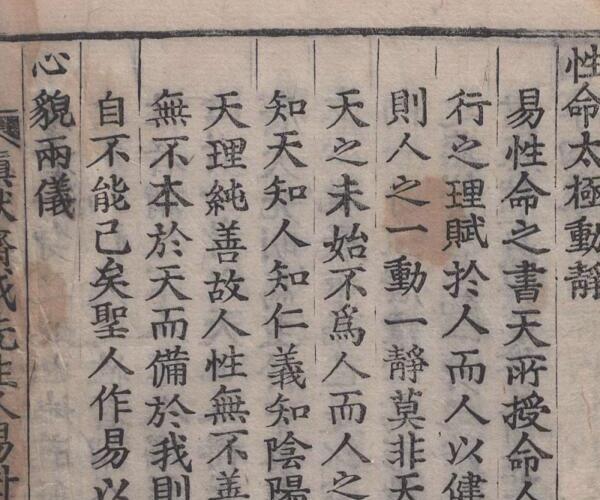 性命太極動靜
易性命之書天所授命人
行之理賦於人而人以健
則人之一動一靜莫非天
天之未始不爲人而人之
知天知人知仁義知陰陽
天理純善故人性無不善
無不本於天而備於我則
自不能已矣聖人作易以
心貌兩儀